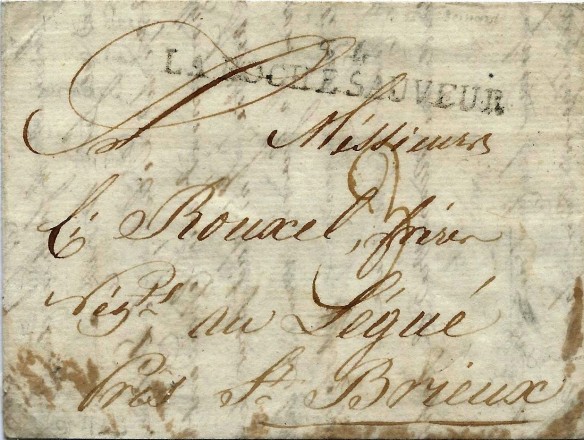 54
LA ROCHE SAUVEUR
A Messieurs
Rouxel, frères
Nég.ts au Légué
Près St. Brieux